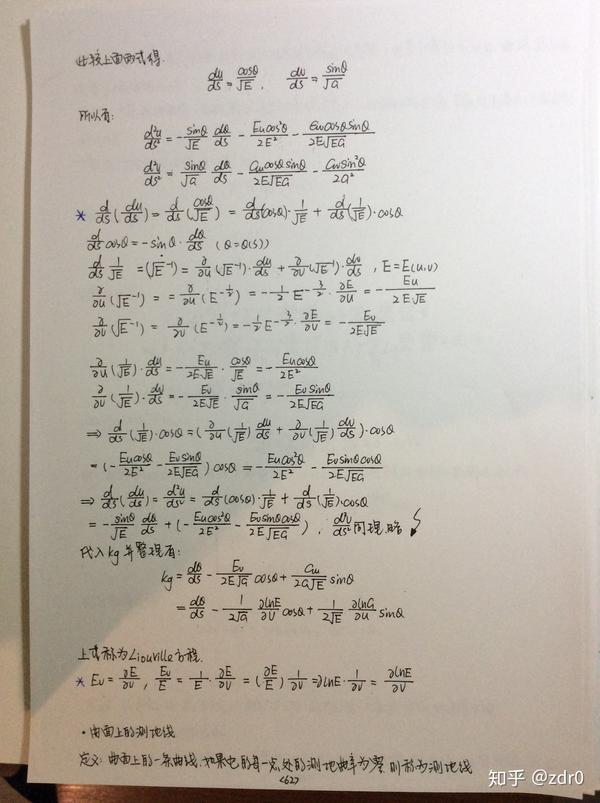 比较上面两式得.
du/ds = cosθ/√E , dv/ds = sinθ/√G
所以有:
d²u/ds² = -sinθ/√E dθ/ds - Eu cos²θ/2E² - Ev cosθ sinθ/2E√EG
d²v/ds² = sinθ/√G dθ/ds - Gu cosθ sinθ/2E√EG - Gv sin²θ/2G²
* d/ds (du/ds) = d/ds (cosθ/√E) = d/ds (cosθ)·1/√E + d/ds (1/√E)·cosθ
d/ds cosθ = -sinθ·dθ/ds (θ=θ(s))
d/ds 1/√E = (√E⁻¹) = ∂/∂u (√E⁻¹)·du/ds + ∂/∂v (√E⁻¹)·dv/ds , E=E(u,v)
∂/∂u (√E⁻¹) = = ∂/∂u (E^(-1/2)) = -1/2 E^(-3/2)·∂E/∂u = -Eu/2E√E
∂/∂v (√E⁻¹) = ∂/∂v (E^(-1/2)) = -1/2 E^(-3/2)·∂E/∂v = -Ev/2E√E
∂/∂u (1/√E)·du/ds = -Eu/2E√E · cosθ/√E = -Eu cosθ/2E²
∂/∂v (1/√E)·dv/ds = -Ev/2E√E · sinθ/√G = -Ev sinθ/2E√EG
⇒ d/ds (1/√E)·cosθ = (∂/∂u (1/√E) du/ds + ∂/∂v (1/√E) dv/ds)·cosθ
= (-Eu cosθ/2E² - Ev sinθ/2E√EG) cosθ = -Eu cos²θ/2E² - Ev sinθ cosθ/2E√EG
⇒ d/ds (du/ds) = d²u/ds² = d/ds (cosθ)·1/√E + d/ds (1/√E)·cosθ
= -sinθ/√E dθ/ds + (-Eu cos²θ/2E² - Ev sinθ cosθ/2E√EG) , d²v/ds² 同理, 略
代入kg并整理有:
kg = dθ/ds - Ev/2E√G cosθ + Gu/2G√E sinθ
= dθ/ds - 1/2√G ∂lnE/∂v cosθ + 1/2√E ∂lnG/∂u sinθ
上式称为Liouville方程.
* Ev = ∂E/∂v , Ev/E = 1/E · ∂E/∂v = (∂E/E) 1/∂v = ∂lnE · 1/∂v = ∂lnE/∂v
·曲面上的测地线
定义: 曲面上的一条曲线, 如果它的每一点处的测地曲率为零, 则称为测地线
<62>
知乎 @zdr0